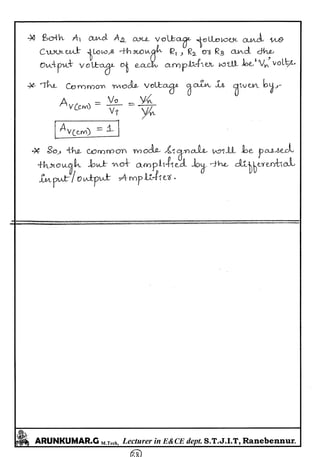 * Both A₁ and A₂ are voltage follower and no
Current flows through R₁, R₂ or R₃ and the
Output voltage of each amplifier will be 'Vn' volts.
* The Common mode voltage gain is given by,-
Av(cm) = Vo / V1 = Vn / Vn
Av(cm) = 1
* So, the common mode signals will be passed
through but not amplified by the differential
input / output Amplifier.
ARUNKUMAR.G M.Tech, Lecturer in E&CE dept. S.T.J.I.T, Ranebennur.